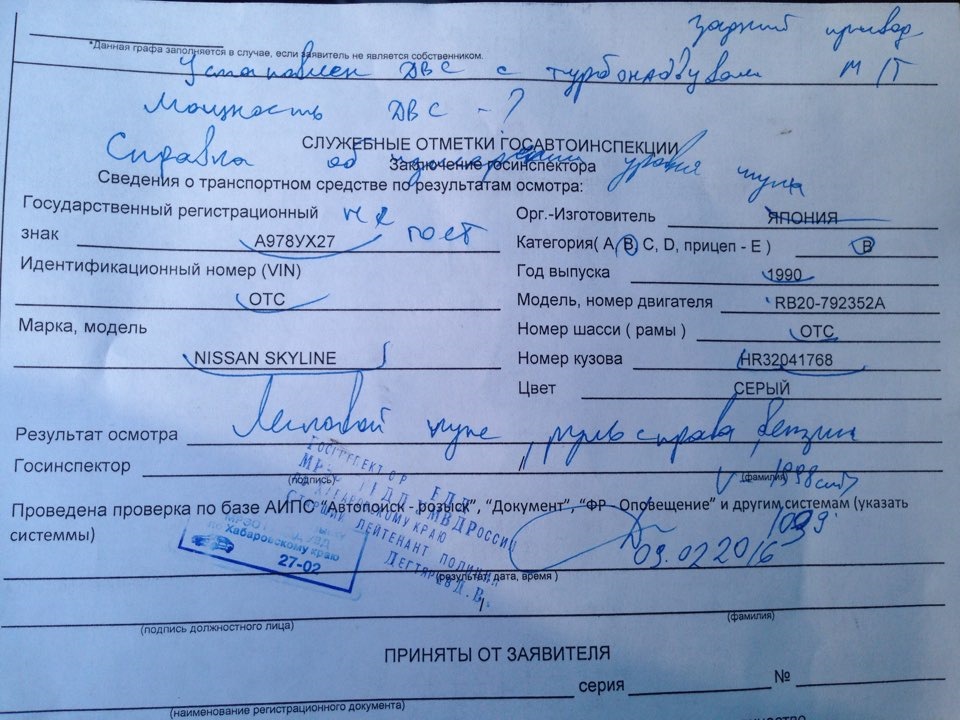 Задний привод
*Данная графа заполняется в случае, если заявитель не является собственником.
Установлен ДВС с турбонаддувом М/Т
Мощность ДВС - ?
СЛУЖЕБНЫЕ ОТМЕТКИ ГОСАВТОИНСПЕКЦИИ
Справка об уровня шума
Заключение госинспектора
Сведения о транспортном средстве по результатам осмотра:
Государственный регистрационный
знак А978УХ27 не гост
Идентификационный номер (VIN)
ОТС
Марка, модель
NISSAN SKYLINE
Орг.-Изготовитель ЯПОНИЯ
Категория( А, В, С, D, прицеп - Е ) В
Год выпуска 1990
Модель, номер двигателя RB20-792352A
Номер шасси ( рамы ) ОТС
Номер кузова HR32041768
Цвет СЕРЫЙ
Результат осмотра Легковой купе, руль справа бензин
Госинспектор
(подпись) (фамилия) V 1998 см3
Проведена проверка по базе АИПС "Автопоиск - розыск", "Документ", "ФР - Оповещение" и другим системам (указать
системмы)
ГОСИНСПЕКТОР БДД
МВД РОССИИ
ПО ХАБАРОВСКОМУ КРАЮ
СТАРШИЙ ЛЕЙТЕНАНТ ПОЛИЦИИ
ДЕГТЯРЕВ Д.В.
Хабаровскому краю
27-02
09.02.2016
(результат, дата, время )
(подпись должностного лица) (фамилия)
ПРИНЯТЫ ОТ ЗАЯВИТЕЛЯ
серия №
(наименование регистрационного документа)